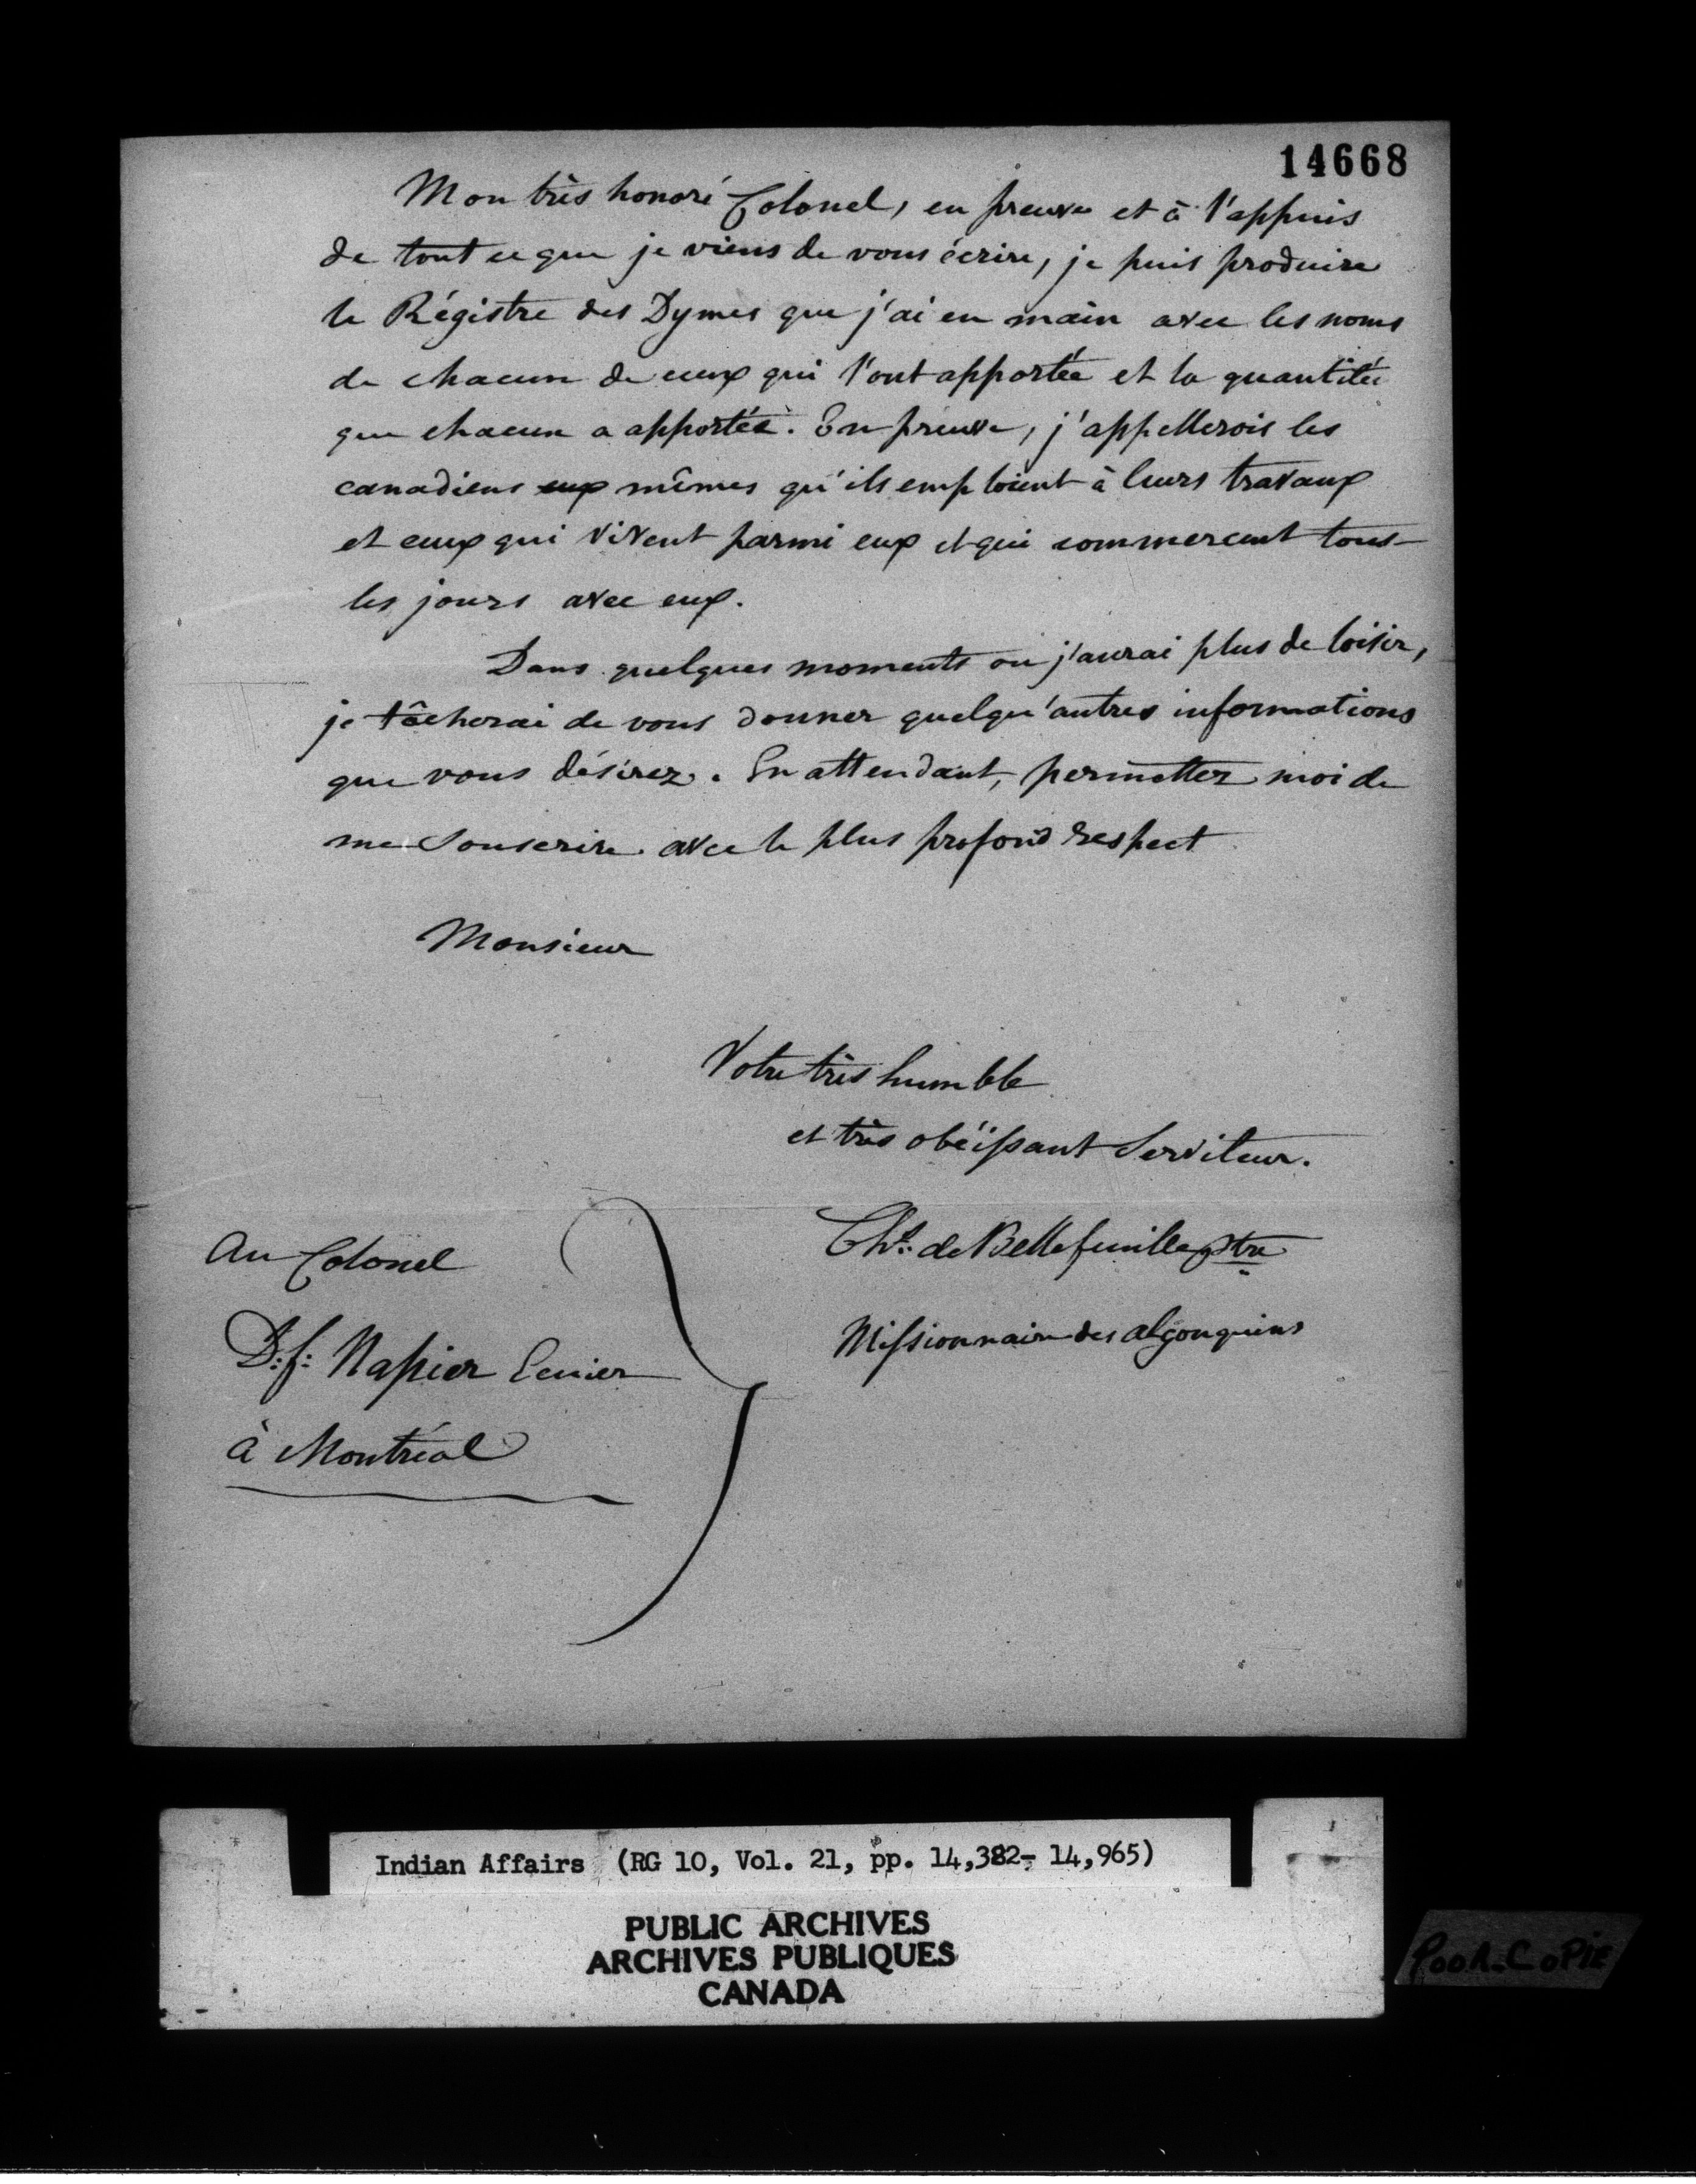 14668
Mon très honoré Colonel, en preuve et à l'appuis
de tout ce que je viens de vous écrire, je puis produire
le Régistre des Dymes que j'ai en main avec les noms
de chacun de ceux qui l'ont apportée et la quantitée
que chacun a apportée. En preuve, j'appellerois les
canadiens eux mêmes qu'ils emploient à leurs travaux
et ceux qui vivent parmi eux et qui commercent tous
les jours avec eux.
Dans quelques moments ou j'aurai plus de loisir,
je tâcherai de vous donner quelqu'autres informations
que vous désirez. En attendant, permettez moi de
me souscrire avec le plus profond respect
Monsieur
Votre très humble
et très obéissant Serviteur.
Chs. de Bellefeuille ptre
Missionnaire des algonquins
Au Colonel
D: f: Napier Ecuier
à Montréal
Indian Affairs (RG 10, Vol. 21, pp. 14,382- 14,965)
PUBLIC ARCHIVES
ARCHIVES PUBLIQUES
CANADA
POOR COPIE